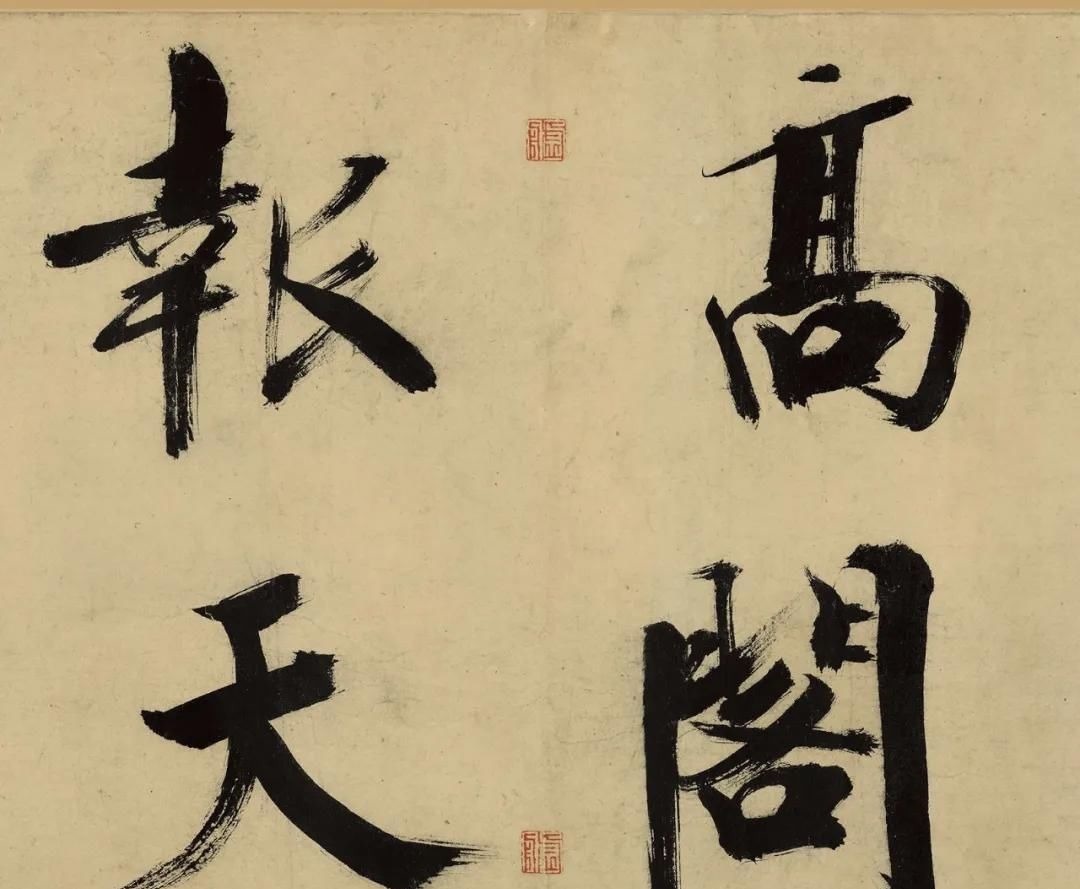 高閣
報天